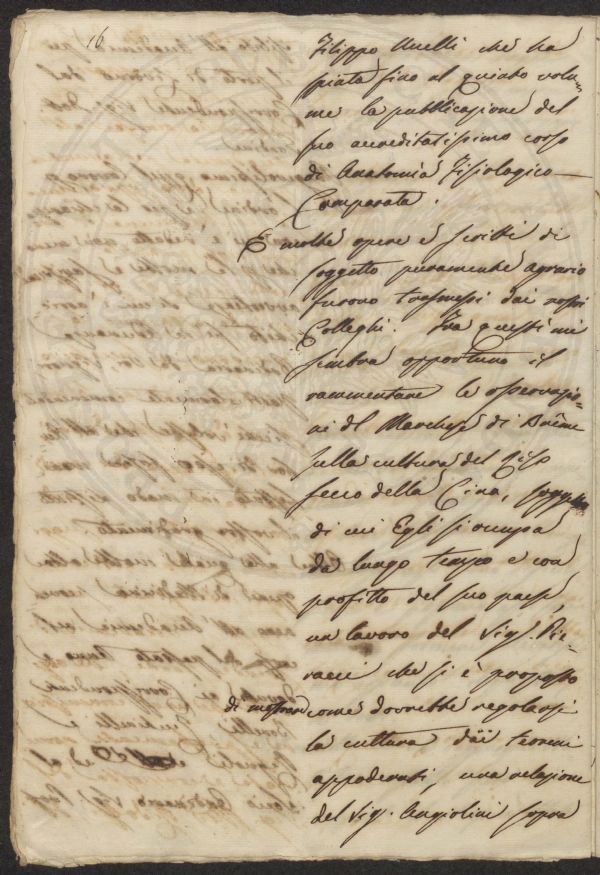 16
Filippo Uccelli che ha
spinta fino al quinto volu=
me la pubblicazione del
suo accreditatissimo corso
di Anatomia Fisiologico-
Comparata.
E molte opere e scritti di
soggetto puramente agrario
furono trasmessi dai nostri
Colleghi. Fra questi mi
sembra opportuno il
rammentare le osservazio=
ni del Marchese di Brême
sulla cultura del Riso
secco della Cina, soggetto
di cui Egli si occupa
da lungo tempo e con
profitto del suo paese,
un lavoro del Sig. Pie-
racci che si è proposto
di mostrare come dovrebbe regolarsi
la cultura dei terreni
appoderati, una relazione
del Sig. Angiolini sopra